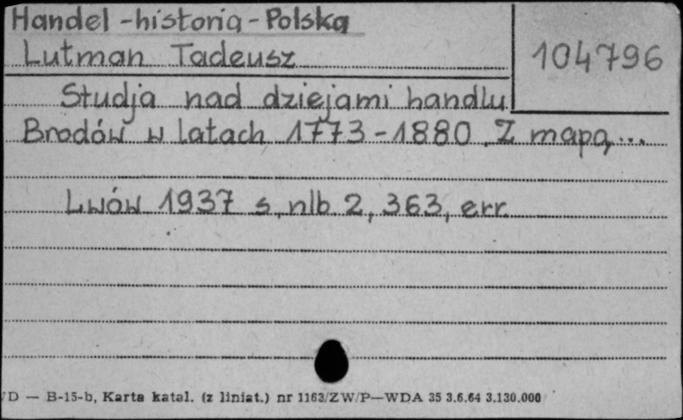 Handel - historia - Polska
Lutman Tadeusz
104796
Studja nad dziejami handlu
Brodów w latach 1773-1880. Z mapą...
Lwów 1937 s. nlb. 2, 363, err.
D — B-15-b, Karta katal. (z liniat.) nr 1163/ZW/P—WDA 35 3.6.64 3.130.000